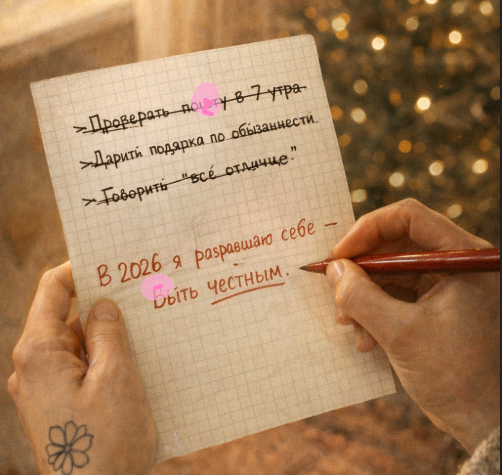 > Проверять в 7 утра
> Дарить подярка по обызаннести.
> Говорить "всё отличце."
В 2026 я разравшаю себе —
Быть честным.